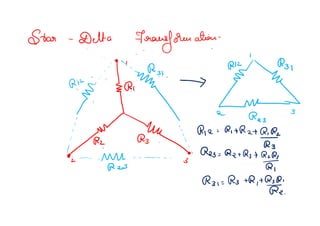 Star - Delta Transformation
1
R12
R31
R1
R2
R3
2
3
R23
1
R12
R31
2
3
R23
R12 = R1 + R2 + R1R2/R3
R23 = R2 + R3 + R2R3/R1
R31 = R3 + R1 + R3R1/R2